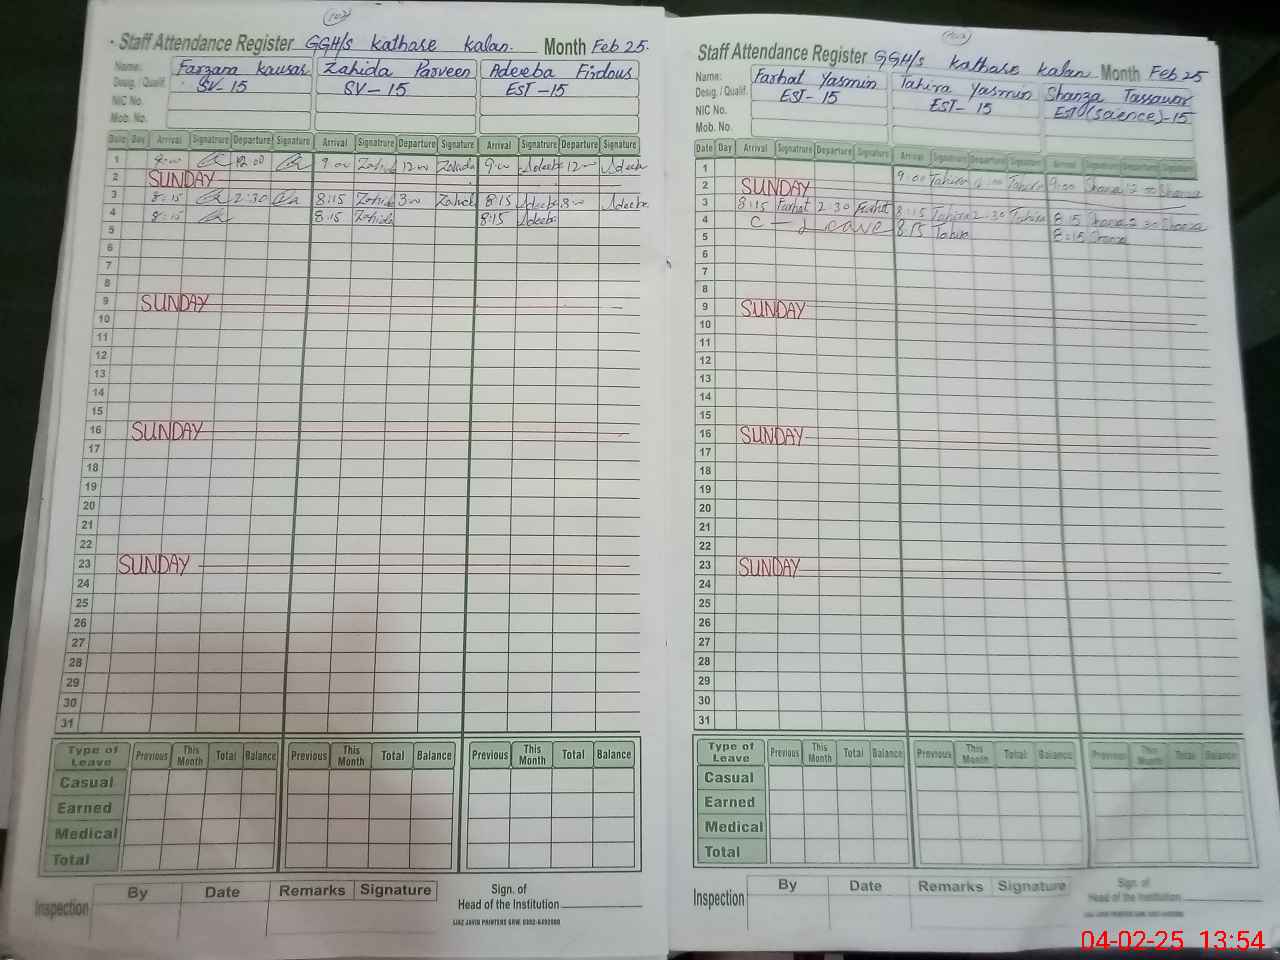 102
Staff Attendance Register GGH/s Kathase Kalan. Month Feb 25.
Name: Farzana Kausar Zahida Parveen Adeeba Firdous
Desig./ Qualif. SV-15 SV-15 EST-15
NIC No.
Mob. No.
Date Day Arrival Signatrure Departure Signature Arrival Signatrure Departure Signature Arrival Signatrure Departure Signature
1 9:00 12:00 9:00 Zahida 12:00 Zahida 9:00 Adeeba 12:00 Adeeba
2 SUNDAY
3 8:15 2:30 8:15 Zahida 3:00 Zahid 8:15 Adeeba 3:00 Adeeba
4 8:15 8:15 Zahida 8:15 Adeeba
5
6
7
8
9 SUNDAY
10
11
12
13
14
15
16 SUNDAY
17
18
19
20
21
22
23 SUNDAY
24
25
26
27
28
29
30
31
Type of Leave Previous This Month Total Balance Previous This Month Total Balance Previous This Month Total Balance
Casual
Earned
Medical
Total
Inspection By Date Remarks Signature
Sign. of
Head of the Institution
IJAZ JAVID PRINTERS GRW.
Staff Attendance Register GGH/s Kathase Kalan Month Feb 25
Name: Farhat Yasmin Tahira Yasmin Shanza Tassawar
Desig. / Qualif. EST-15 EST-15 EST (Science)-15
NIC No.
Mob. No.
Date Day Arrival Signatrure Departure Signature Arrival Signatrure Departure Signature Arrival Signatrure Departure Signature
1 9:00 Tahira Tahira 9:00 Shanza 12:00 Shanza
2 SUNDAY
3 8:15 Farhat 2:30 Farhat 8:15 Tahira 2:30 Tahira 8:15 Shanza 2:30 Shanza
4 C-Leave 8:15 Tahira 8:15 Shanza
5
6
7
8
9 SUNDAY
10
11
12
13
14
15
16 SUNDAY
17
18
19
20
21
22
23 SUNDAY
24
25
26
27
28
29
30
31
Type of Leave Previous This Month Total Balance Previous This Month Total Balance Previous This Month Total Balance
Casual
Earned
Medical
Total
Inspection By Date Remarks Signature
Sign. of
Head of the Institution
04-02-25 13:54